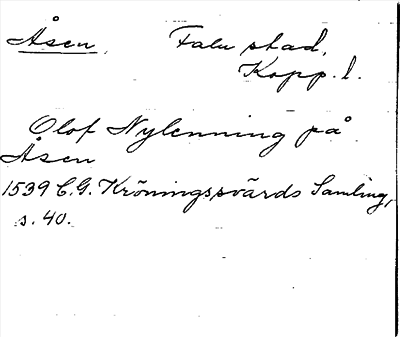 Åsen, Falu stad,
Kopp. l.
Olof Nylenning på
Åsen
1539 C.G. Kröningssvärds Samling,
s. 40.